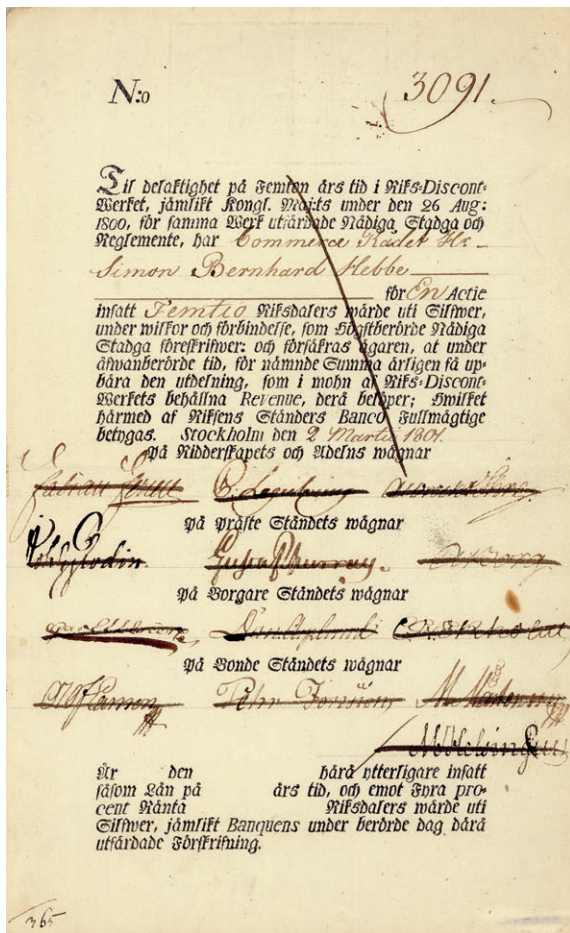 N:o 3091.
Til delaktighet på Femton års tid i Riks-Discont-
Werket, jämlikt Kongl. Maj:ts under den 26 Aug:
1800, för samma Werk utfärdade Nådiga Stadga och
Reglemente, har Commerce Rådet Hr
Simon Bernhard Hebbe
för En Actie
insatt Femtio Riksdalers wärde uti Silfwer,
under wilkor och förbindelse, som Högstberörde Nådiga
Stadga föreskrifwer: och försäkras ägaren, at under
åfwanberörde tid, för nämnde Summa årligen få up-
bära den utdelning, som i mohn af Riks-Discont-
Werkets behållna Revenue, derå belöper; Hwilket
härmed af Riksens Ständers Banco Fullmägtige
betygas. Stockholm den 2 Martii 1801.
På Ridderskapets och Adelns wägnar
Fabian
På Präste Ståndets wägnar
Gustaf Murray.
På Borgare Ståndets wägnar
På Bonde Ståndets wägnar
Pehr
År den härå ytterligare insatt
såsom Lån på års tid, och emot Fyra pro-
cent Ränta Riksdalers wärde uti
Silfwer, jämlikt Banquens under berörde dag därå
utfärdade Förskrifning.
365